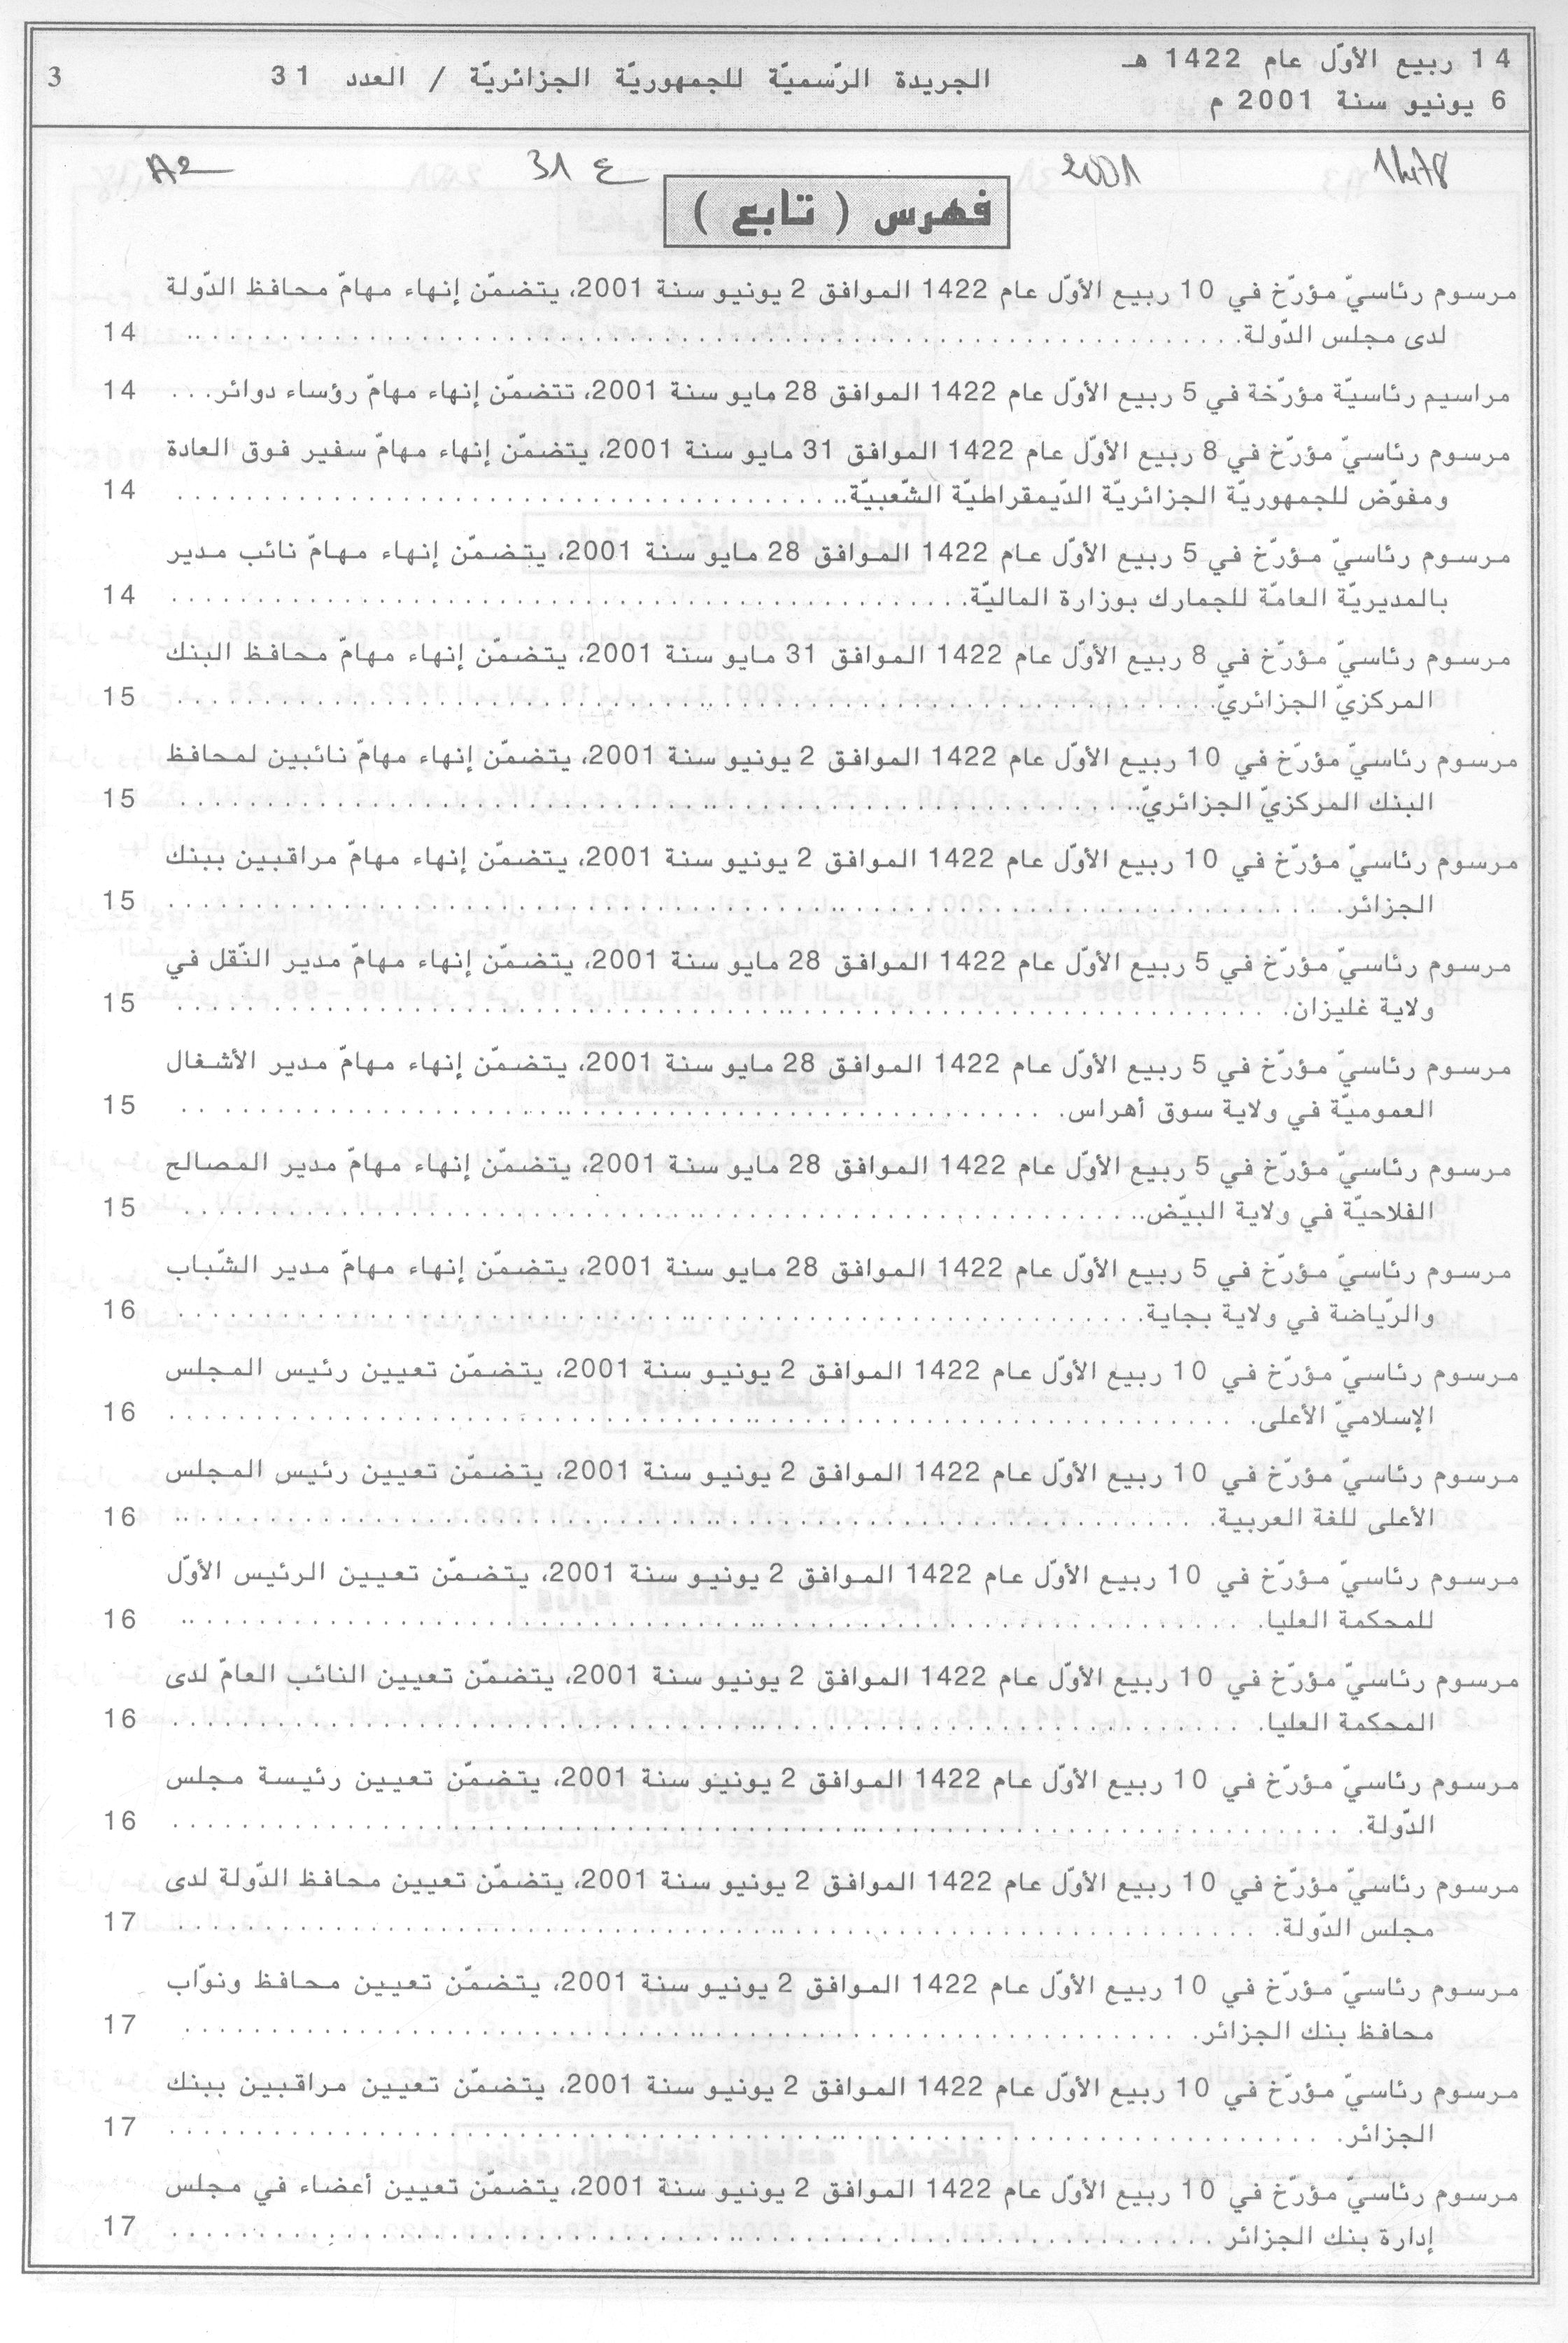 14 ربيع الأوّل عام 1422 هـ
6 يونيو سنة 2001 م
الجريدة الرّسميّة للجمهوريّة الجزائريّة / العدد 31
3
2001
31 ع
A2
فهرس ( تابع )
مرسوم رئاسيّ مؤرّخ في 10 ربيع الأوّل عام 1422 الموافق 2 يونيو سنة 2001، يتضمّن إنهاء مهامّ محافظ الدّولة
لدى مجلس الدّولة. 14
مراسيم رئاسيّة مؤرّخة في 5 ربيع الأوّل عام 1422 الموافق 28 مايو سنة 2001، تتضمّن إنهاء مهامّ رؤساء دوائر... 14
مرسوم رئاسيّ مؤرّخ في 8 ربيع الأوّل عام 1422 الموافق 31 مايو سنة 2001، يتضمّن إنهاء مهامّ سفير فوق العادة
ومفوّض للجمهوريّة الجزائريّة الدّيمقراطيّة الشّعبيّة.. 14
مرسوم رئاسيّ مؤرّخ في 5 ربيع الأوّل عام 1422 الموافق 28 مايو سنة 2001، يتضمّن إنهاء مهامّ نائب مدير
بالمديريّة العامّة للجمارك بوزارة الماليّة. 14
مرسوم رئاسيّ مؤرّخ في 8 ربيع الأوّل عام 1422 الموافق 31 مايو سنة 2001، يتضمّن إنهاء مهامّ محافظ البنك
المركزيّ الجزائريّ. 15
مرسوم رئاسيّ مؤرّخ في 10 ربيع الأوّل عام 1422 الموافق 2 يونيو سنة 2001، يتضمّن إنهاء مهامّ نائبين لمحافظ
البنك المركزيّ الجزائريّ.. 15
مرسوم رئاسيّ مؤرّخ في 10 ربيع الأوّل عام 1422 الموافق 2 يونيو سنة 2001، يتضمّن إنهاء مهامّ مراقبين ببنك
الجزائر. 15
مرسوم رئاسيّ مؤرّخ في 5 ربيع الأوّل عام 1422 الموافق 28 مايو سنة 2001، يتضمّن إنهاء مهامّ مدير النّقل في
ولاية غليزان. 15
مرسوم رئاسيّ مؤرّخ في 5 ربيع الأوّل عام 1422 الموافق 28 مايو سنة 2001، يتضمّن إنهاء مهامّ مدير الأشغال
العموميّة في ولاية سوق أهراس. 15
مرسوم رئاسيّ مؤرّخ في 5 ربيع الأوّل عام 1422 الموافق 28 مايو سنة 2001، يتضمّن إنهاء مهامّ مدير المصالح
الفلاحيّة في ولاية البيّض.. 15
مرسوم رئاسيّ مؤرّخ في 5 ربيع الأوّل عام 1422 الموافق 28 مايو سنة 2001، يتضمّن إنهاء مهامّ مدير الشّباب
والرّياضة في ولاية بجاية. 16
مرسوم رئاسيّ مؤرّخ في 10 ربيع الأوّل عام 1422 الموافق 2 يونيو سنة 2001، يتضمّن تعيين رئيس المجلس
الإسلاميّ الأعلى. 16
مرسوم رئاسيّ مؤرّخ في 10 ربيع الأوّل عام 1422 الموافق 2 يونيو سنة 2001، يتضمّن تعيين رئيس المجلس
الأعلى للغة العربية. 16
مرسوم رئاسيّ مؤرّخ في 10 ربيع الأوّل عام 1422 الموافق 2 يونيو سنة 2001، يتضمّن تعيين الرئيس الأوّل
للمحكمة العليا. 16
مرسوم رئاسيّ مؤرّخ في 10 ربيع الأوّل عام 1422 الموافق 2 يونيو سنة 2001، يتضمّن تعيين النائب العامّ لدى
المحكمة العليا. 16
مرسوم رئاسيّ مؤرّخ في 10 ربيع الأوّل عام 1422 الموافق 2 يونيو سنة 2001، يتضمّن تعيين رئيسة مجلس
الدّولة. 16
مرسوم رئاسيّ مؤرّخ في 10 ربيع الأوّل عام 1422 الموافق 2 يونيو سنة 2001، يتضمّن تعيين محافظ الدّولة لدى
مجلس الدّولة. 17
مرسوم رئاسيّ مؤرّخ في 10 ربيع الأوّل عام 1422 الموافق 2 يونيو سنة 2001، يتضمّن تعيين محافظ ونوّاب
محافظ بنك الجزائر. 17
مرسوم رئاسيّ مؤرّخ في 10 ربيع الأوّل عام 1422 الموافق 2 يونيو سنة 2001، يتضمّن تعيين مراقبين ببنك
الجزائر. 17
مرسوم رئاسيّ مؤرّخ في 10 ربيع الأوّل عام 1422 الموافق 2 يونيو سنة 2001، يتضمّن تعيين أعضاء في مجلس
إدارة بنك الجزائر 17